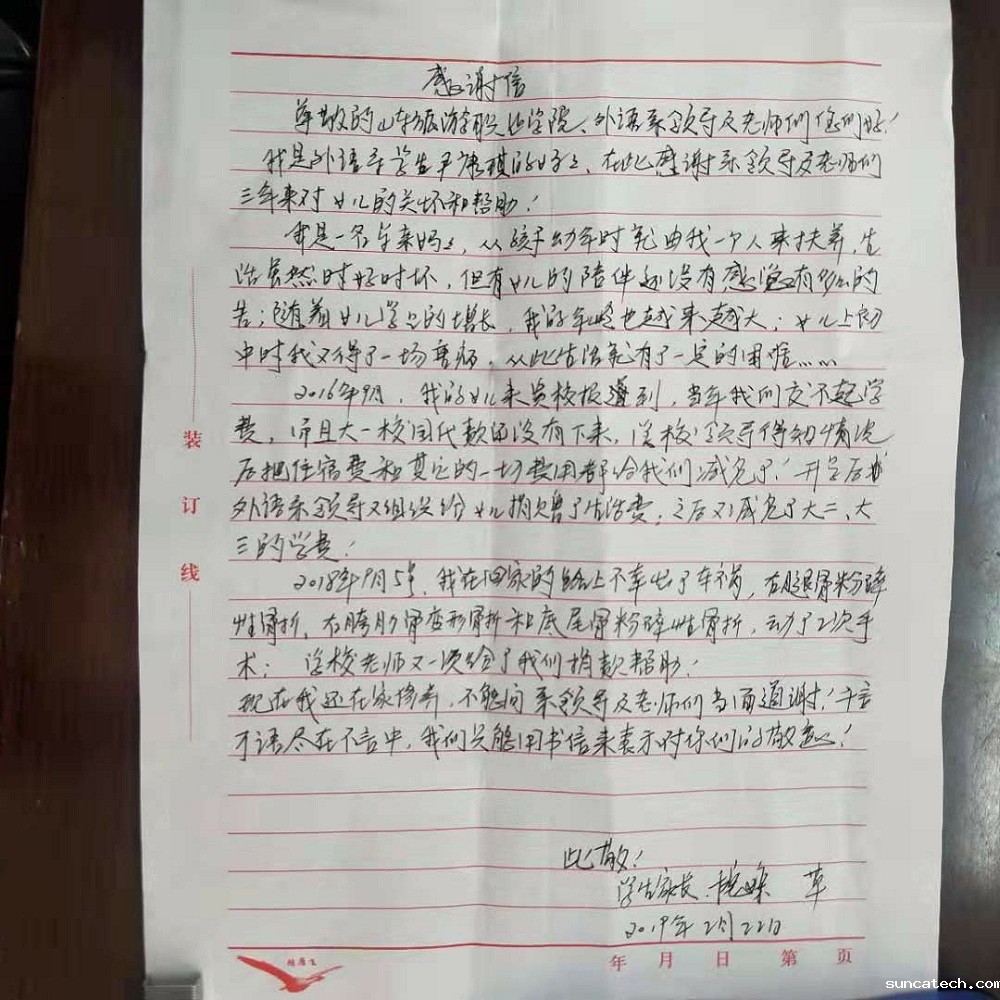 感谢信
尊敬的山东旅游职业学院、外语系领导及老师们您们好!
我是外语系学生尹康琪的妈妈、在此感谢系领导及老师们
三年来对女儿的关怀和帮助!
我是一名单亲妈妈,从孩子幼年时就由我一个人来扶养,生
活虽然时好时坏,但有女儿的陪伴还没有感觉有多么的
苦;随着女儿学业的增长,我的年岁也越来越大;女儿上初
中时我又得了一场重病,从此生活就有了一定的困难……
2016年9月,我的女儿来贵校报到,当年我们交不起学
费,而且大一校园代款还没有下来,学校领导得知情况
后把住宿费和其它的一切费用都给我们减免了!开学后
外语系领导又组织给女儿捐赠了生活费;之后又减免了大二、大
三的学费!
2018年9月5号,我在回家的路上不幸出了车祸,右腿骨粉碎
性骨折,右胯骨变形骨折和底尾骨粉碎性骨折,动了2次手
术;学校老师又一次给了我们捐款帮助!
现在我还在家修养,不能向系领导及老师们当面道谢!千言
万语尽在不言中,我们只能用书信来表示对你们的敬意!
此敬!
学生家长
2019年2月22日
装
订
线
年 月 日 第 页
suncatech.com